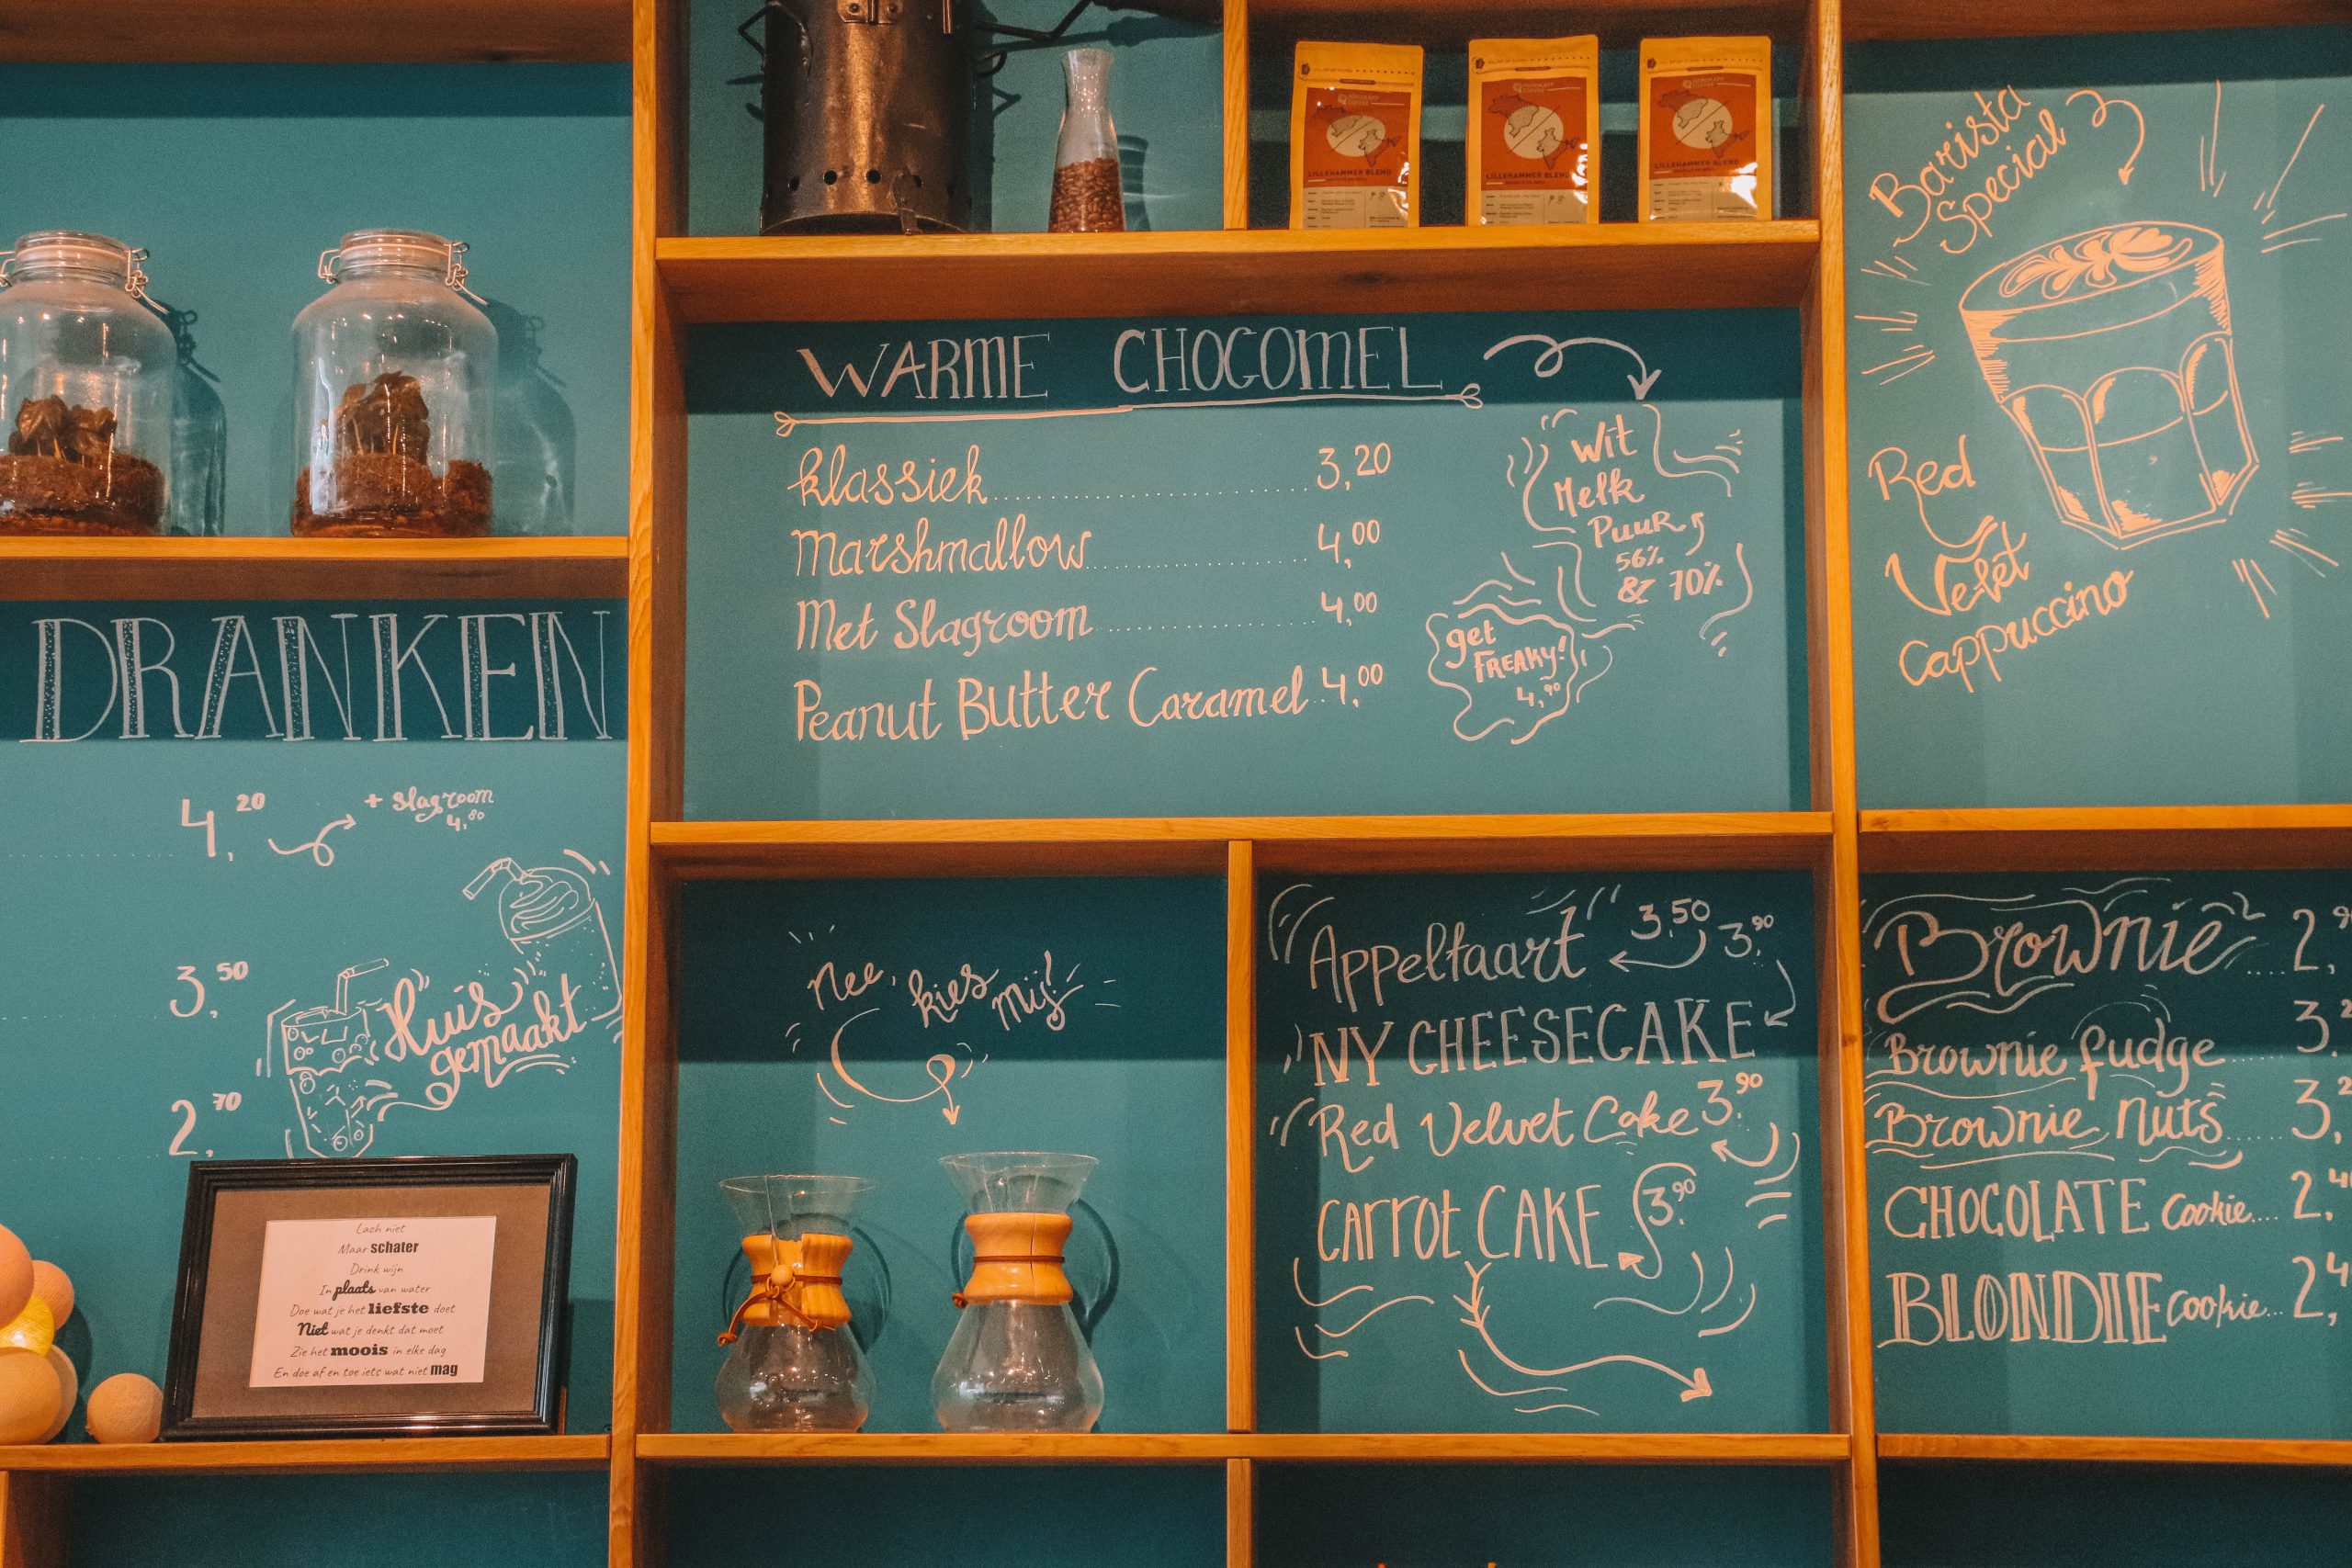 LILLEHAMMER BLEND
LILLEHAMMER BLEND
LILLEHAMMER BLEND
DRANKEN
4,20
+ slagroom
4,80
3,50
Huis
gemaakt
2,70
Lach niet
Maar schater
Drink wijn
In plaats van water
Doe wat je het liefste doet
Niet wat je denkt dat moet
Zie het moois in elke dag
En doe af en toe iets wat niet mag
WARME CHOCOMEL
Klassiek 3,20
Marshmallow 4,00
Met Slagroom 4,00
Peanut Butter Caramel 4,00
Wit
Melk
Puur
56%
& 70%
get
FREAKY!
4,90
Nee, kies mij!
Appeltaart 3,50
3,90
NY CHEESECAKE
Red Velvet Cake 3,90
CARROT CAKE 3,90
Barista
Special
Red
Velvet
Cappuccino
Brownie 2,
Brownie fudge 3,
Brownie Nuts 3,
CHOCOLATE Cookie 2,4
BLONDIE Cookie 2,4